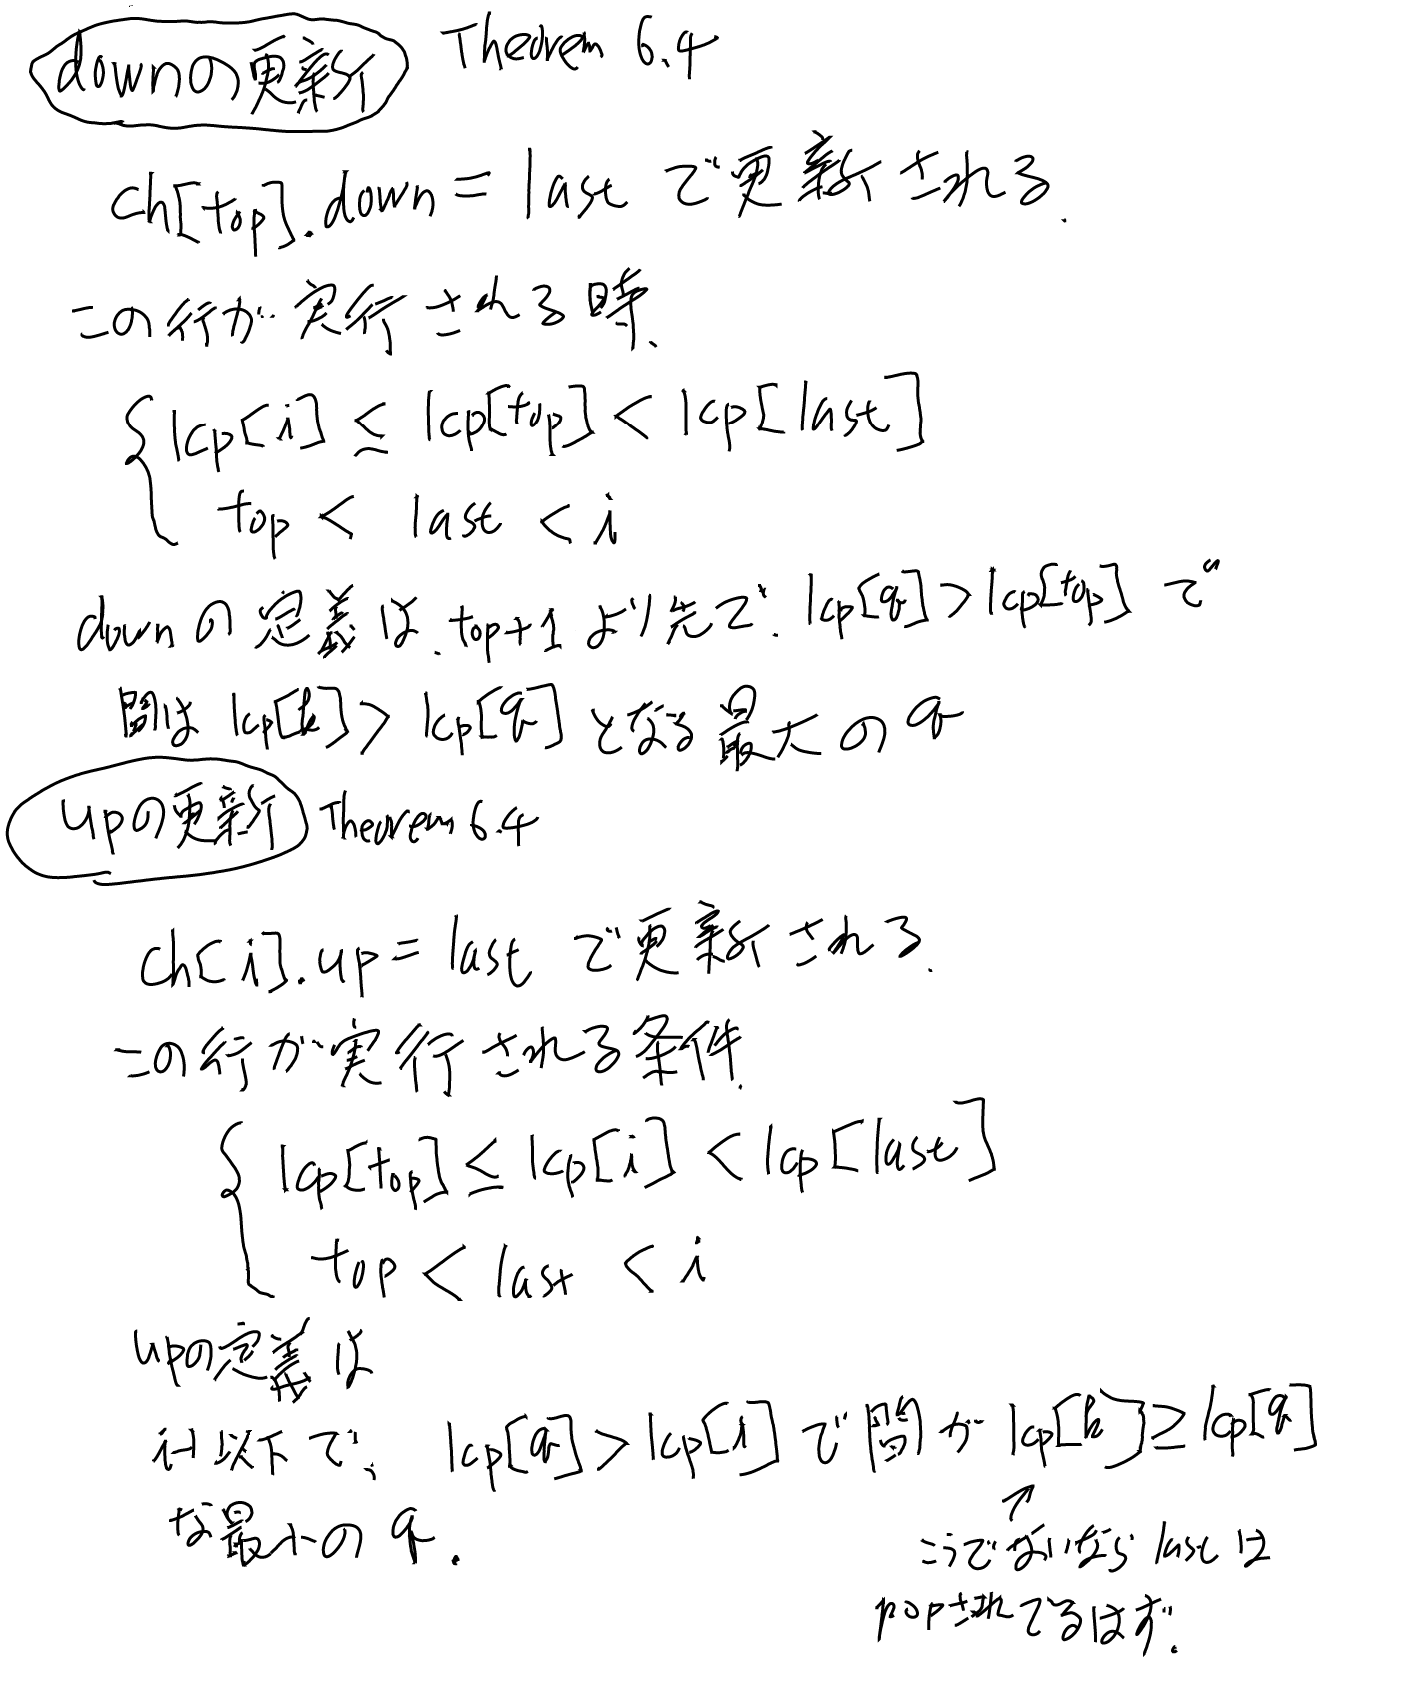 downの更新 Theorem 6.4
ch[top].down = last で更新される.
この行が実行される時、
{ lcp[i] ≤ lcp[top] < lcp[last]
top < last < i
downの定義は、top+1より先で、lcp[q] > lcp[top] で
間は lcp[k] > lcp[q] となる最大の q
upの更新 Theorem 6.4
ch[i].up = last で更新される.
この行が実行される条件、
{ lcp[top] ≤ lcp[i] < lcp[last]
top < last < i
upの定義は
i-1以下で、lcp[q] > lcp[i] で間が lcp[k] ≥ lcp[q]
な最小の q.
↑
こうでないなら last は
popされてるはず.